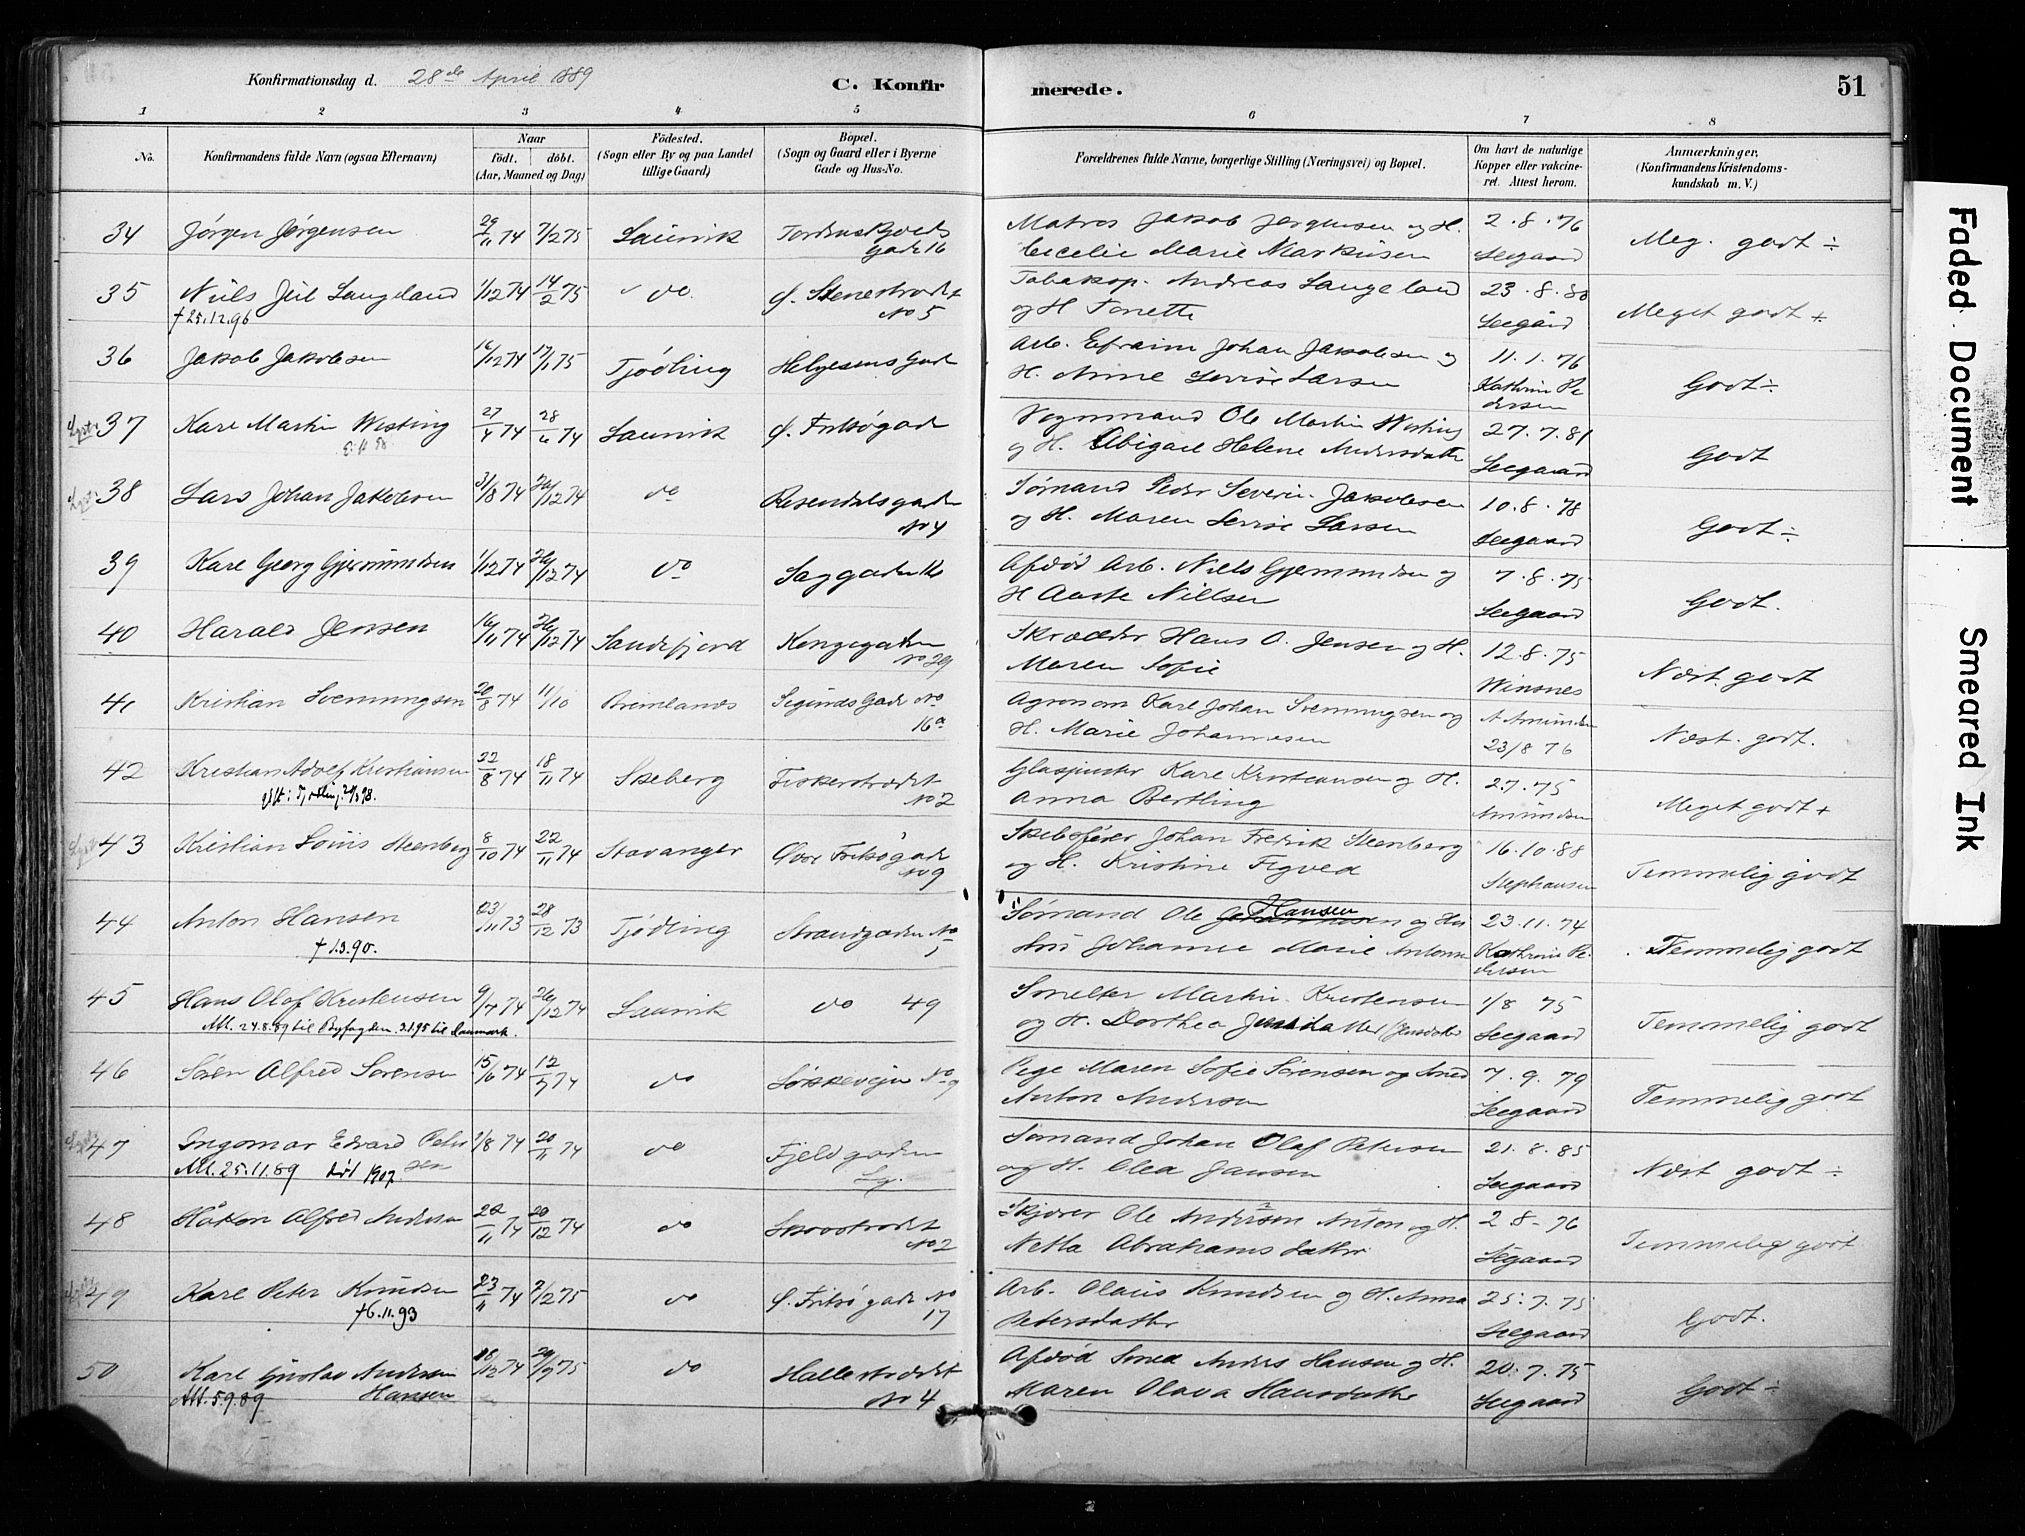 Konfirmationsdag d. 28de April 1889
C. Konfirmerede. 51
1 2 3 4 5 6 7 8
No. Konfirmandens fulde Navn (ogsaa Efternavn) Naar født. døbt. (Aar, Maaned og Dag) Födested. (Sogn eller By og paa Landet tillige Gaard) Bopæl. (Sogn og Gaard eller i Byerne Gade og Hus-No. Forældrenes fulde Navne, borgerlige Stilling (Næringsvei) og Bopæl. Om havt de naturlige Kopper eller vakcineret. Attest herom. Anmærkninger, (Konfirmandens Kristendomskundskab m. V.)
34 Jørgen Jørgensen 29/11 74 7/2 75 Laurvik Gade 16 Matros Jakob Jørgensen og H. Cecelie Marie Markusen 2.8.76 Seegaard Meg. godt ÷
35 Niels Langeland 1/12 74 14/2 75 do Ø. Stenestrædet No 5 Andreas Langeland og H. Tonette 23.8.80 Seegard Meget godt +
† 25.12.96
36 Jakob Jakobsen 16/12 74 17/1 75 Tjødling Helgesens Gade Arb. Efraim Johan Jakobsen og H. Anne Larsen 11.1.76 Kathrine Pedersen Godt ÷
37 Karl Martin Wisting 27/4 74 28/6 74 Laurvik Ø. Fritsøgade Vognmand Ole Martin Wisting og H. Abigael Helene Andersdatter 27.7.81 Seegaard Godt
38 Lars Johan Jakobsen 31/8 74 26/12 74 do Rosendalsgaden No 4 Sømand Peder Severin Jakobsen og H. Maren Larsen 10.8.78 Seegaard Godt ÷
39 Karl Georg Gjermundsen 1/12 74 26/12 74 do Saggaden Afdød Arb. Niels Gjermundsen og H. Nielsen 7.8.75 Seegaard Godt.
40 Harald Jensen 16/11 74 26/12 74 Sandefjord Kongegaden No 29 Skrædder Hans O. Jensen og H. Maren Sofie 12.8.75 Winsnes Næst. godt
41 Kristian Svenningsen 20/8 74 11/10 Brunlanes Sigurds Gade No 16a Agronom Karl Johan Svenningsen og H. Marie Johannesen A Amundsen 23/8 76 Næst. godt.
42 Kristian Adolf Kristiansen 22/8 74 18/11 74 Skeberg Fiskerstrædet No 2 Glaspuster Karl Kristiansen og H. Anna Bertling 27.75 Amundsen Meget godt +
gift i Tjødling
43 Kristian Louis Steenberg 8/10 74 22/11 74 Stavanger Øvre Fritsøgade No 9 Skibsfører Johan Fredrik Steenberg og H. Kristine Figved 16.10.88 Stephansen Temmelig godt
44 Anton Hansen 23/11 73 28/12 73 Tjødling Strandgaden No 5 Sømand Ole Hansen og Hustru Johanne Marie Antonsen 23.11.74 Kathrine Pedersen Temmelig godt
† 1.3.90.
45 Hans Olaf Kristensen 9/7 74 26/12 74 Laurvik do 49 Smelter Martin Kristensen og H. Dorthea Jensdatter 1/8 75 Seegaard Temmelig godt
Att. 24.8.89 til Byfogden. 3.1.95 til Danmark.
46 Søren Alfred Sørensen 15/6 74 12/7 74 do No 9 Pige Maren Sofie Sørensen og Smed Anton Andersen 7.9.79 Seegaard Temmelig godt
47 Ingomar Edvard Petersen 1/8 74 20/11 74 do Fjeldgaden Sømand Johan Olaf Petersen og H. Olea Jansen 21.8.85 Seegaard Næst godt ÷
Att. 25.11.89 død 1907.
48 Håkon Alfred Andersen 22/11 74 20/12 74 do No 2 Ole Andersen Anton og H. Netta Abrahamsdatter 2 8-76 Segaard Temmelig godt
49 Karl Peter Knudsen 23/11 74 7/2 75 do Ø. Fritsøgade No 17 Arb. Olaus Knudsen og H. Anna Petersdatter 25.7.75 Seegaard Godt.
† 6.11.93
50 Karl Gustav Andersen Hansen 18/12 74 29/9 75 do Hallestrædet No 4 Afdød Smed Anders Hansen og H. Maren Olava Hansdatter 20.7.75 Seegaard Godt ÷
Att. 5.9.89
Faded Document
Smeared Ink
2